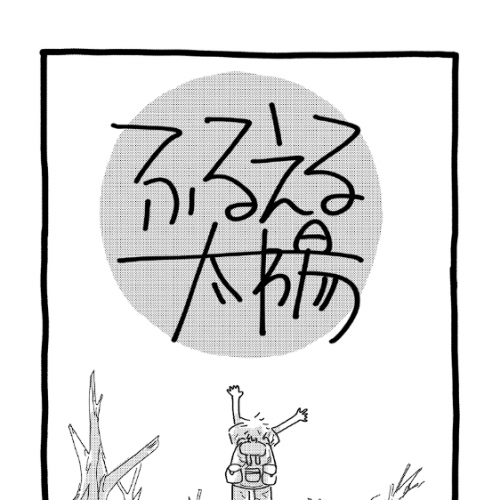 ふるえる
太陽